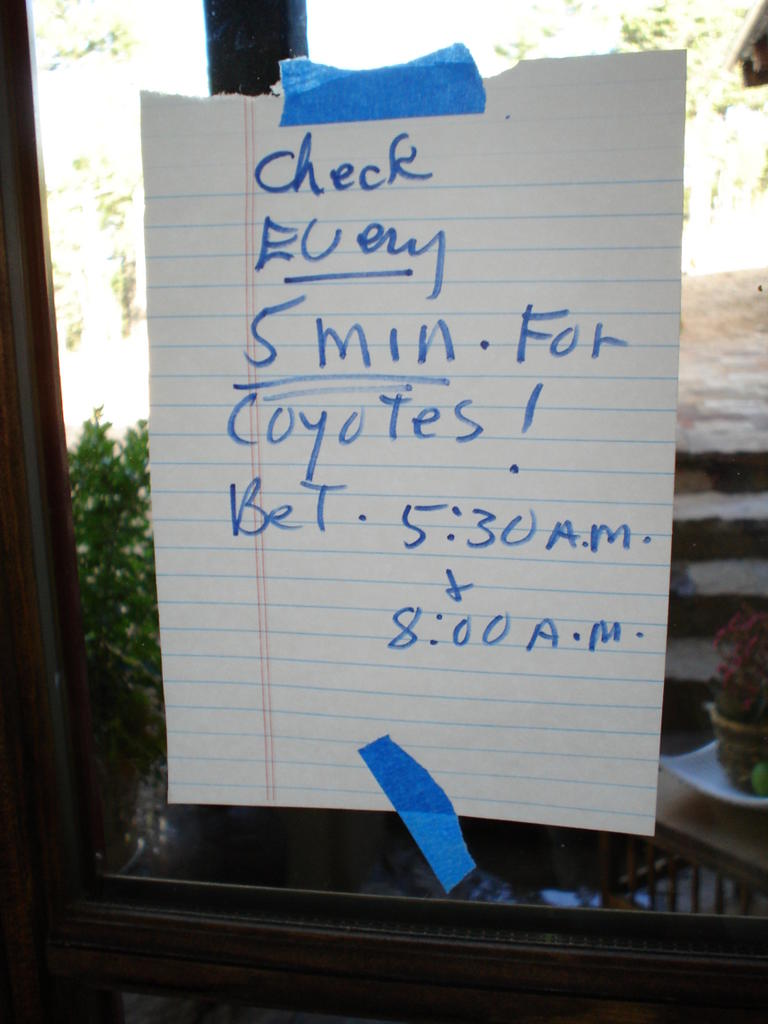 Check
EVery
5 min. For
Coyotes!
BeT. 5:30 A.M.
&
8:00 A.M.